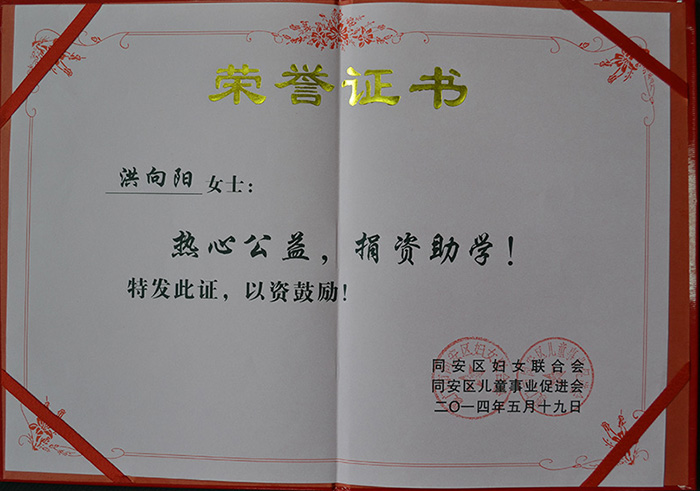 荣誉证书
洪向阳女士：
热心公益，捐资助学！
特发此证，以资鼓励！
同安区妇女联合会
同安区儿童事业促进会
二〇一四年五月十九日